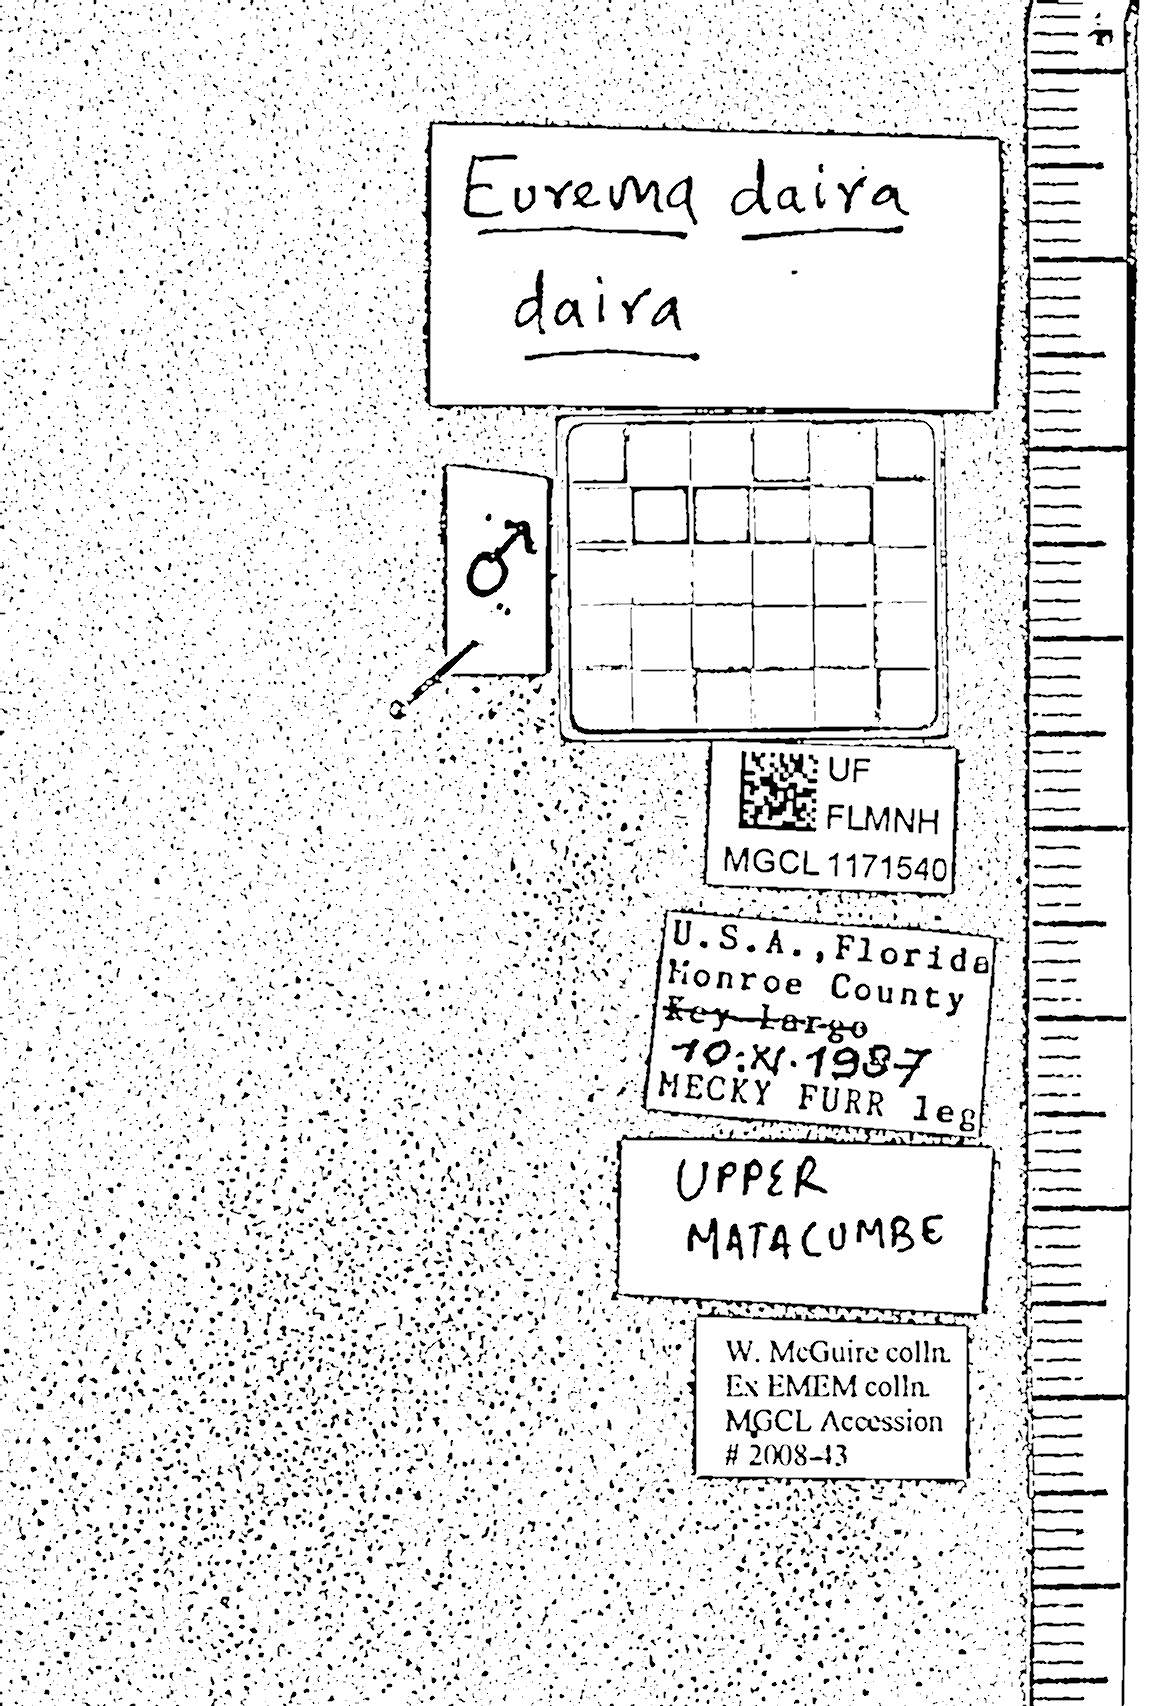 Eurema daira
daira
♂
UF
FLMNH
MGCL 1171540
U.S.A., Florida
Monroe County
Key Largo
10.XI.1987
MECKY FURR leg
UPPER
MATACUMBE
W. McGuire colln.
Ex EMEM colln.
MGCL Accession
# 2008-43